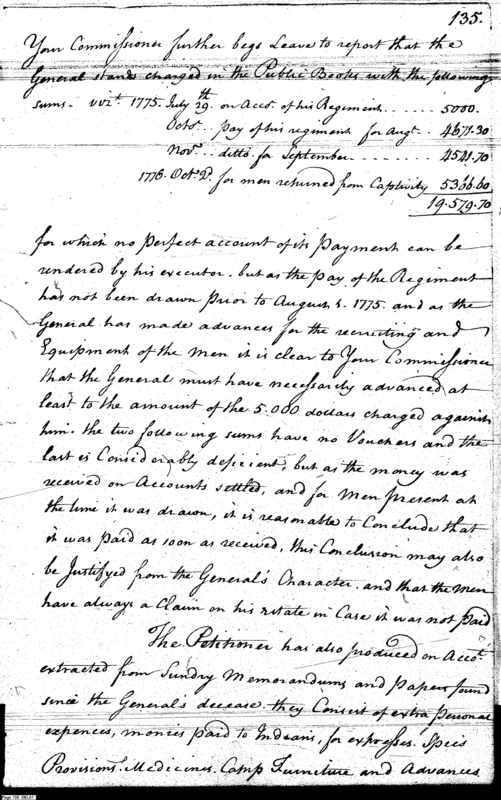 135.
Your Commissioner further begs Leave to report that the
General stands charged in the Public Books with the following
sums. vizt. 1775. July 29th. on Acco. of his Regiment . . . . . . 5000.
Octo. pay of his regiment for Augt. . . 4671.30
Novr. . . ditto for September . . . . . . . 4541.70
1776. Oct. 2d. for men returned from Captivity 5366.60
19.579.70
for which no perfect account of its payment can be
rendered by his executor. but as the pay of the Regiment
has not been drawn prior to August 1. 1775. and as the
General has made advances for the recruiting and
Equipment of the men it is clear to Your Commissioner
that the General must have necessarily advanced at
least to the amount of the 5.000 dollars charged against
him. the two following sums have no Vouchers and the
last is Considerably deficient, but as the money was
received on Accounts settled, and for Men present at
the time it was drawn, it is reasonable to Conclude that
it was paid as soon as received, this Conclusion may also
be Justifyed from the General's Character. and that the men
have always a Claim on his estate in Case it was not paid
The Petitioner has also produced an Acco.
extracted from Sundry Memorandums and Papers found
since the General's decease. they Consist of extra Personal
expences, monies paid to Indians, for expresses. Spies
Provisions. Medicines. Camp Furniture and Advances